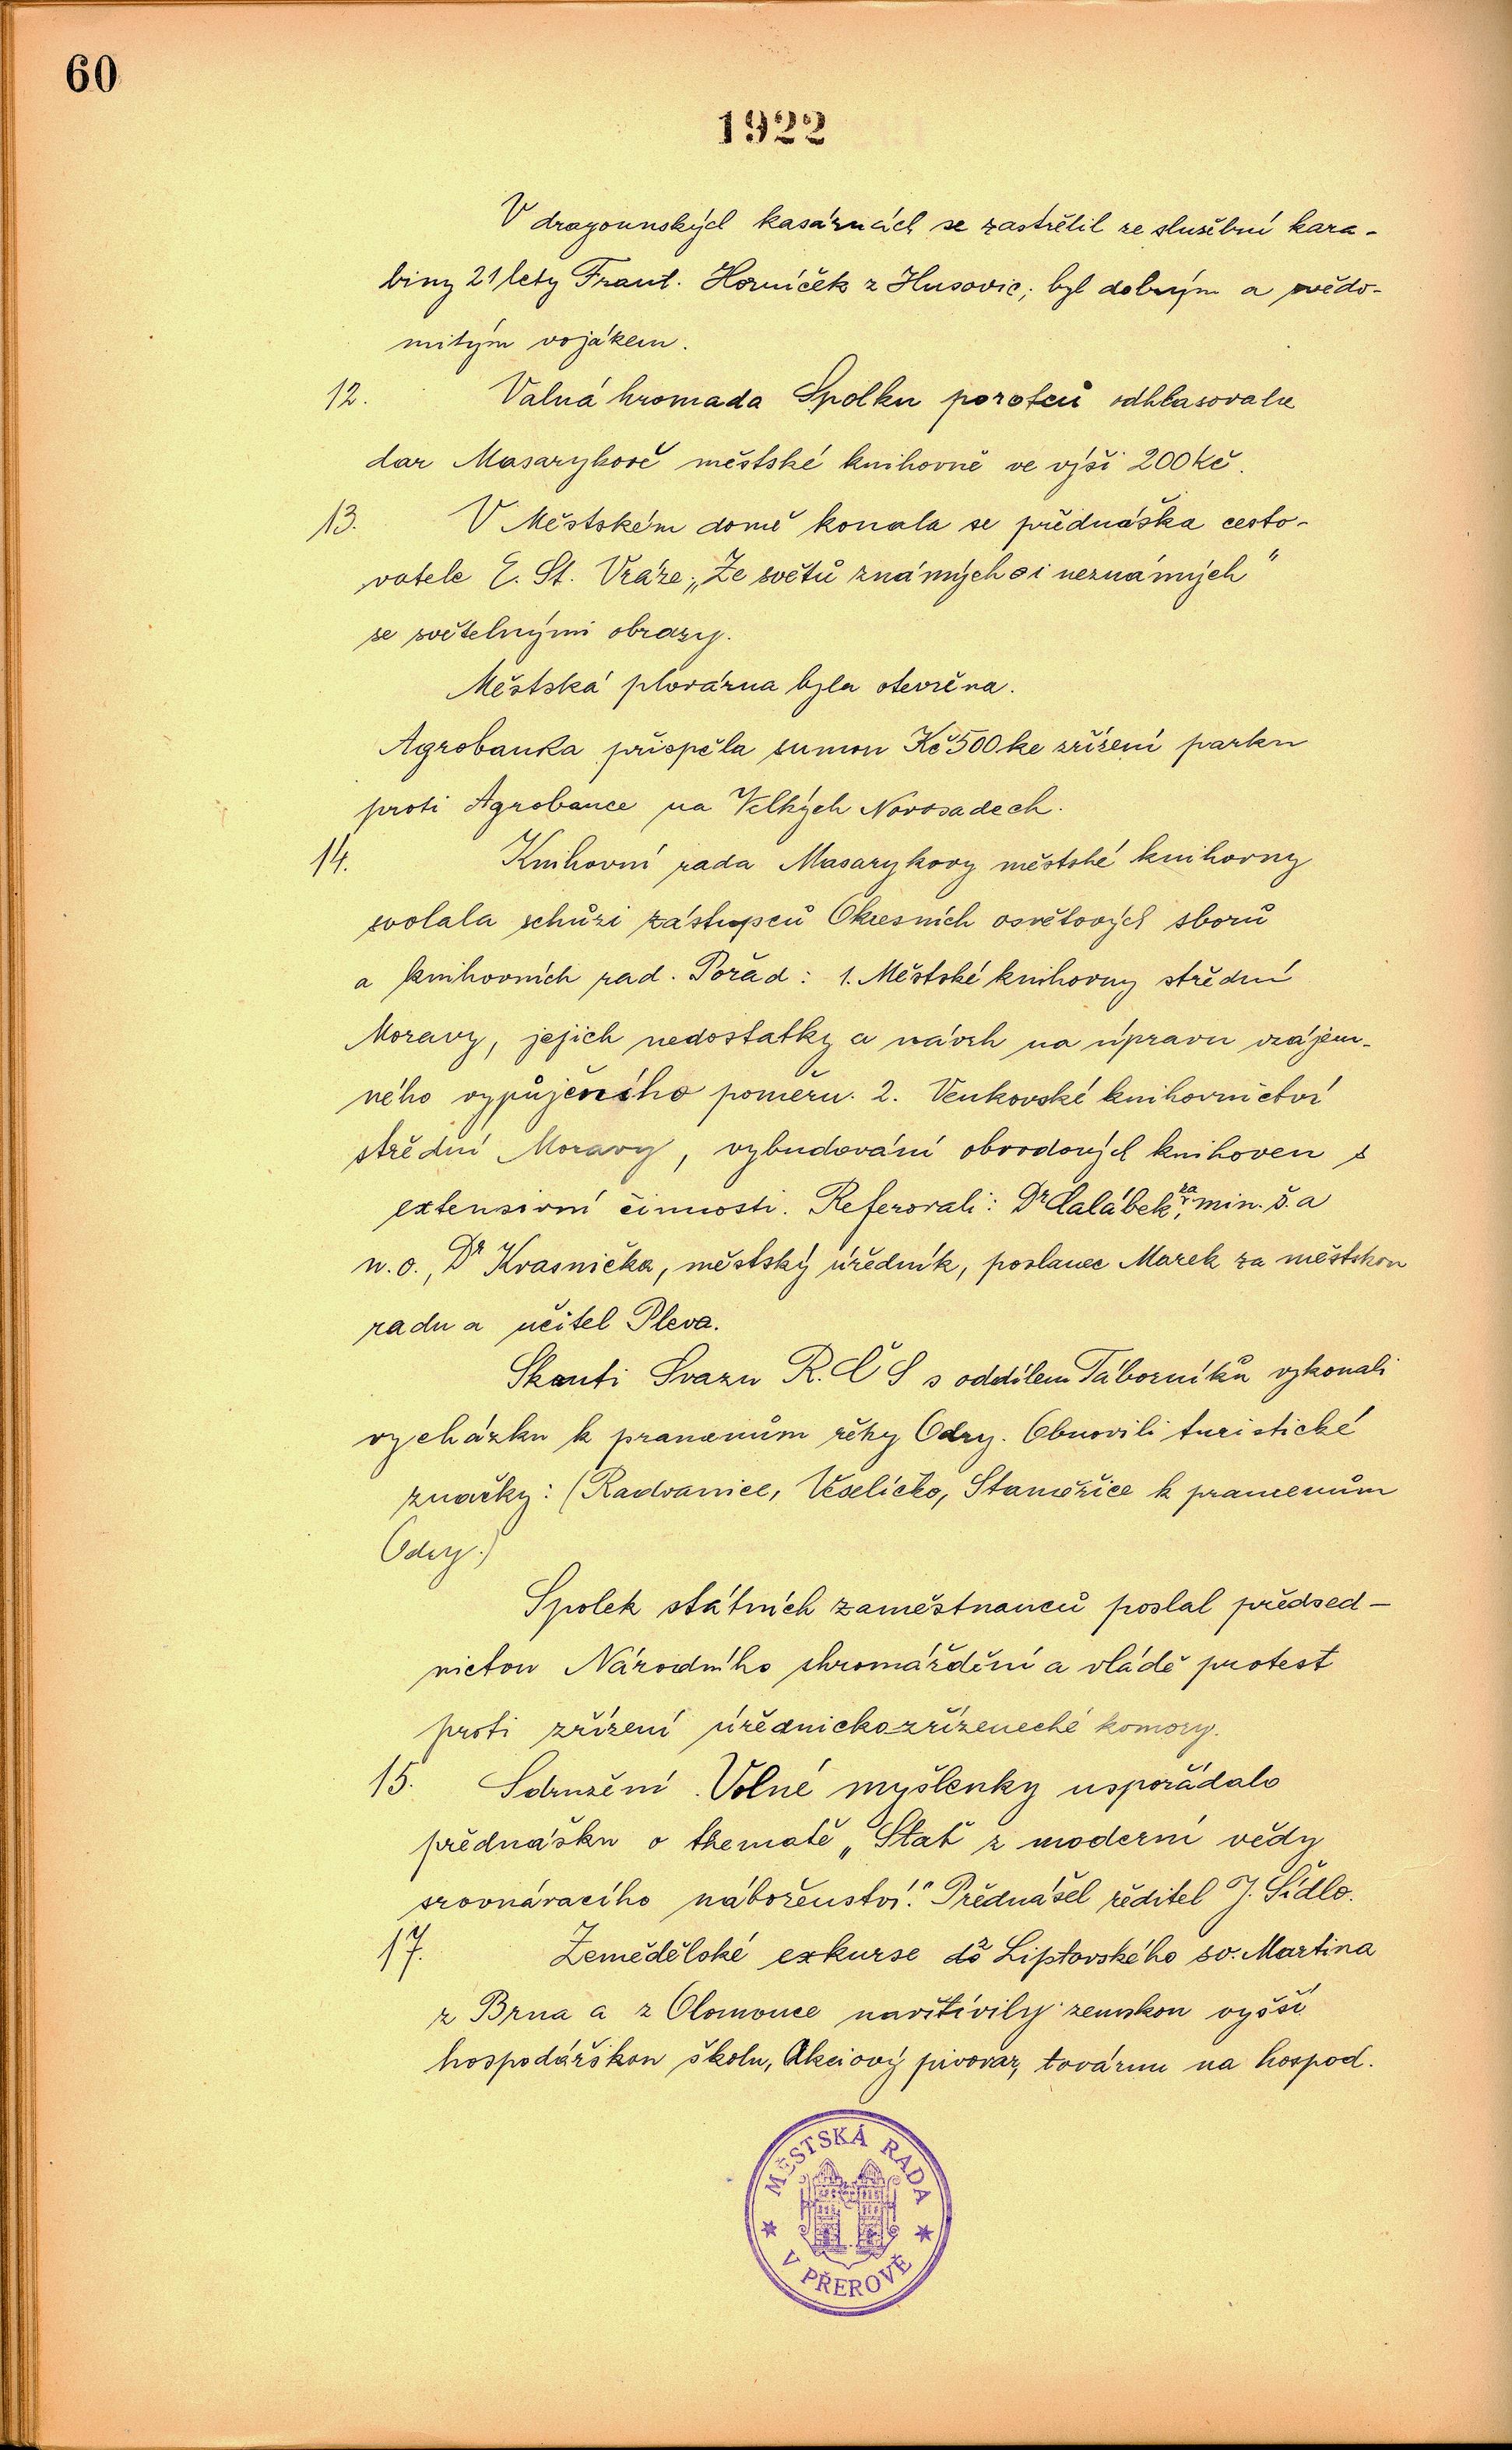 60
1922
V dragounských kasárnách se zastřelil ze služební kara-
biny 21 letý Frant. Horníček z Husovic; byl dobrým a svědo-
mitým vojákem.
12. Valná hromada Spolku porotců odhlasovala
dar Masarykově městské knihovně ve výši 200 Kč.
13. V Městském domě konala se přednáška cesto-
vatele E. St. Vráze „Ze světů známých i neznámých"
se světelnými obrazy.
Městská plovárna byla otevřena.
Agrobanka přispěla sumou Kč 500 ke zřízení parku
proti Agrobance na Velkých Novosadech.
14. Knihovní rada Masarykovy městské knihovny
svolala schůzi zástupců Okresních osvětových sborů
a knihovních rad. Pořad: 1. Městské knihovny střední
Moravy, jejich nedostatky a návrh na úpravu vzájem-
ného vypůjčního poměru. 2. Venkovské knihovnictví
střední Moravy, vybudování obvodových knihoven s
extensivní činností. Referovali: Dr Calábek, za min. š. a
n. o., Dr Kvasnička, městský úředník, poslanec Marek za městskou
radu a učitel Pleva.
Skauti Svazu R. Č S s oddílem Táborníků vykonali
vycházku k pramenům řeky Odry. Obnovili turistické
značky: (Radvanice, Veselíčko, Staměřice k pramenům
Odry.)
Spolek státních zaměstnanců poslal předsed-
nictvu Národního shromáždění a vládě protest
proti zřízení úřednickozřízenecké komory.
15. Sdružení Volné myšlenky uspořádalo
přednášku o thematě „Stať z moderní vědy
srovnávacího náboženství." Přednášel ředitel J. Šídlo.
17. Zemědělské exkurse z Liptovského sv. Martina
z Brna a z Olomouce navštívily zemskou vyšší
hospodářskou školu, Akciový pivovar, továrnu na hospod.
MĚSTSKÁ RADA
V PŘEROVĚ